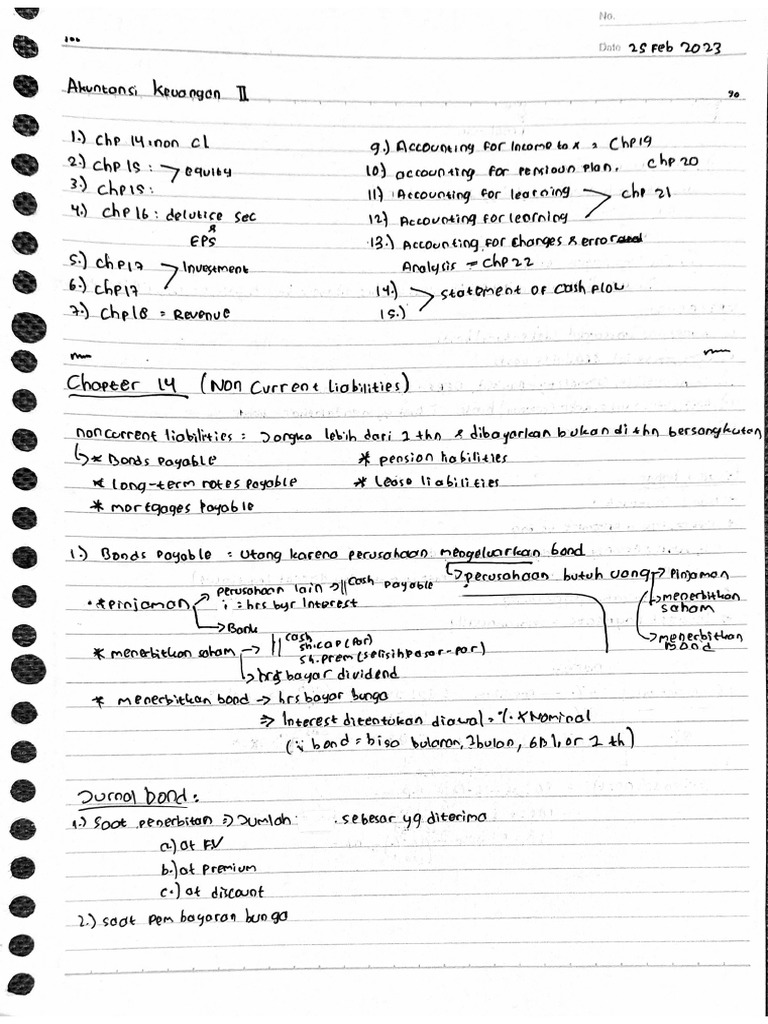 No.
Date 25 Feb 2023
Akuntansi Keuangan II
1.) Chp 14 : non cl
2.) Chp 15 : > equity
3.) Chp 15 :
4.) Chp 16 : delutice sec
& EPS
5.) Chp 17 > Investment
6.) Chp 17
7.) Chp 18 = Revenue
9.) Accounting for Income tax = Chp 19
10) accounting for pensioun plan. Chp 20
11) Accounting for learning > chp 21
12) Accounting for learning
13.) Accounting for Changes & error
Analysis = Chp 22
14.) > Statement of Cash flow
15.)
Chapter 14 (Non Current liabilities)
noncurrent liabilities = Jangka lebih dari 1 thn & dibayarkan bukan di thn bersangkutan
↳ * Bonds Payable * pension liabilities
* long-term notes payable * lease liabilities
* mortgages payable
1.) Bonds Payable = utang karena perusahaan mengeluarkan bond
↳ perusahaan butuh uang → Pinjaman
→ menerbitkan saham
→ menerbitkan Bond
* pinjaman → perusahaan lain → || cash payable
i = hrs byr Interest
→ Bank
* menerbitkan saham → || cash
sh. cap (par)
sh. prem (selisih pasar - par)
↳ hrs bayar dividend
* menerbitkan bond → hrs bayar bunga
⇒ Interest ditentukan diawal = % x Nominal
(∵ bond = bisa bulanan, 3bulan, 6bl, or 1 th)
Jurnal bond :
1.) Saat penerbitan ⇒ Jumlah : sebesar yg diterima
a.) at FV
b.) at premium
c.) at discount
2.) saat pembayaran bunga